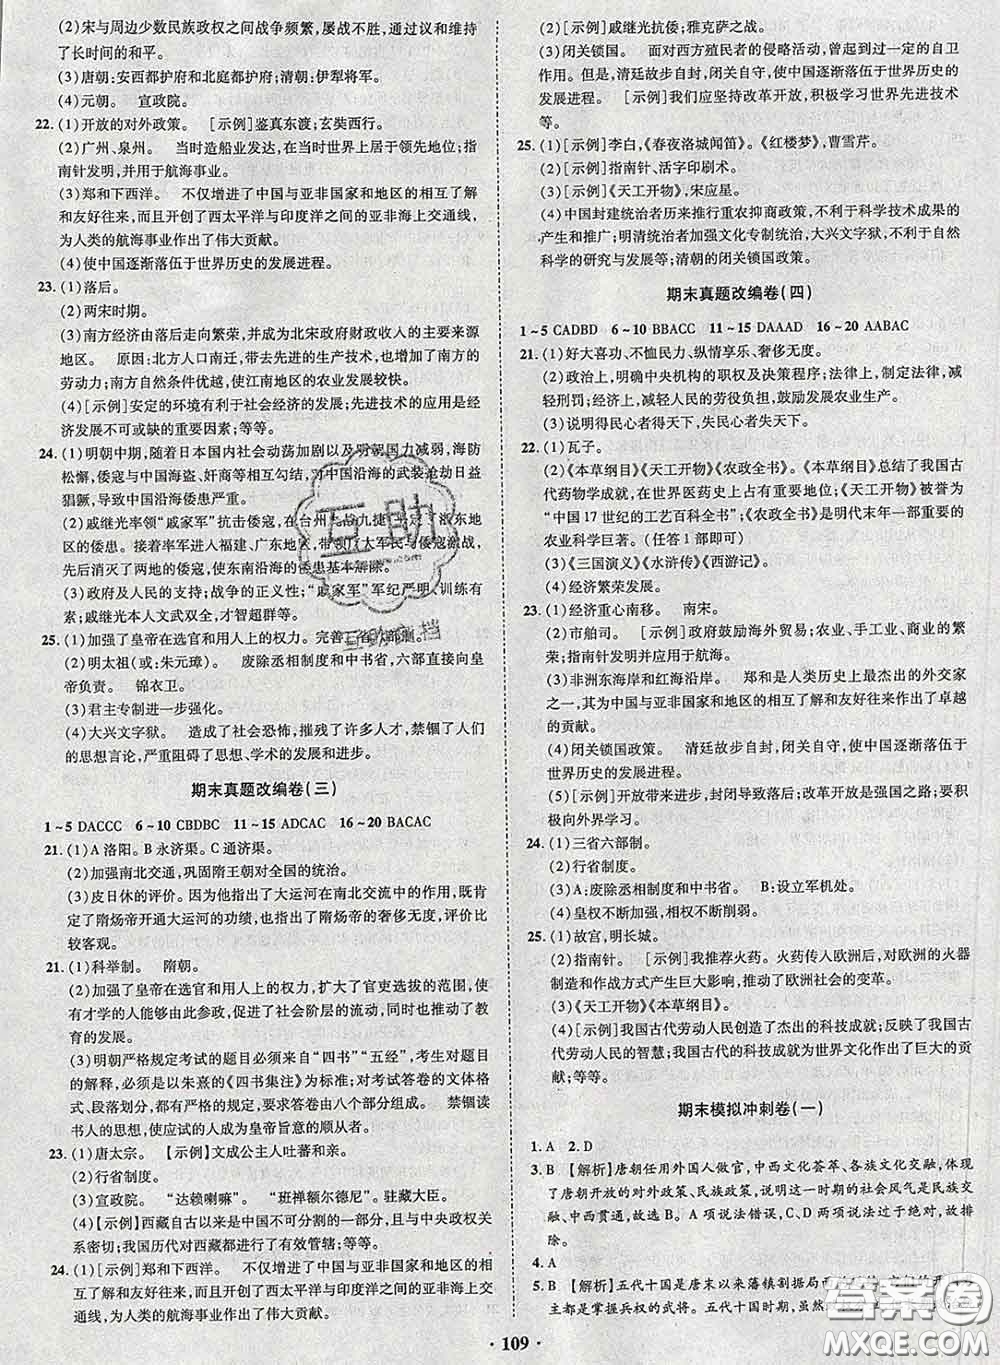 (2)宋与周边少数民族政权之间战争频繁,屡战不胜,通过议和维持了
长时间的和平。
(3)唐朝:安西都护府和北庭都护府;清朝:伊犁将军。
(4)元朝。 宣政院。
22. (1)开放的对外政策。 [示例]鉴真东渡;玄奘西行。
(2)广州、泉州。 当时造船业发达,在世界上居于领先地位;指
南针发明,并用于航海事业。
(3)郑和下西洋。 不仅增进了中国与亚非国家和地区的相互了解
和友好往来,而且开创了西太平洋与印度洋之间的亚非海上交通线,
为人类的航海事业作出了伟大贡献。
(4)使中国逐渐落伍于世界历史的发展进程。
23. (1)落后。
(2)两宋时期。
(3)南方经济由落后走向繁荣,并成为北宋政府财政收入的主要来源
地区。 原因:北方人口南迁,带去先进的生产技术,也增加了南方的
劳动力;南方自然条件优越,使江南地区的农业发展较快。
(4)[示例]安定的环境有利于社会经济的发展;先进技术的应用是经济
发展不可或缺的重要因素;等等。
24. (1)明朝中期,随着日本国内社会动荡加剧以及明朝国力减弱,海防
松懈,倭寇与中国海盗、奸商等相互勾结,对中国沿海的武装抢劫日益
猖獗,导致中国沿海倭患严重。
(2)戚继光率领“戚家军”抗击倭寇,在台州九战九捷,使浙东地区
的倭患。接着率军进入福建、广东地区,带领广大军民与倭寇激战,
先后消灭了两地的倭寇,使东南沿海的倭患基本解除。
(3)政府及人民的支持;战争的正义性;“戚家军”军纪严明,训练有
素;戚继光本人文武双全,领导有方等等。
25. (1)加强了皇帝在选官和用人上的权力。完善三省六部制。
(2)明太祖(或:朱元璋)。 废除丞相制度和中书省,六部直接向皇
帝负责。 锦衣卫。
(3)君主专制进一步强化。
(4)大兴文字狱。 造成了社会恐怖,摧残了许多人才,禁锢了人们
的思想言论,严重阻碍了思想、学术的发展和进步。
期末真题改编卷(三)
1~5 DACCC 6~10 CBDBC 11~15 ADCAC 16~20 BACAC
21. (1)A 洛阳。B 永济渠。C 通济渠。
(2)加强南北交通,巩固隋王朝对全国的统治。
(3)皮日休的评价。因为他指出了大运河在南北交流中的作用,既肯
定了隋炀帝开通大运河的功绩,也指出了隋炀帝的奢侈无度,评价比
较客观。
21. (1)科举制。 隋朝。
(2)加强了皇帝在选官和用人上的权力,扩大了官吏选拔的范围,使
有才学的人能够由此参政,促进了社会阶层的流动,同时也推动了教
育的发展。
(3)明朝严格规定考试的题目必须来自“四书”“五经”,考生对题目
的解释,必须是以朱熹的《四书集注》为标准;对考试答卷的文体格式、
段落安排,都有严格的规定,要求答卷由八个部分组成。 禁锢读
书人的思想,使应试的人成为皇帝旨意的顺从者。
23. (1)唐太宗。 【示例】文成公主入吐蕃和亲。
(2)行省制度。
(3)宣政院。 “达赖喇嘛”。 “班禅额尔德尼”。驻藏大臣。
(4)【示例】西藏自古以来是中国不可分割的一部分,与中央政权关
系密切;我国历代对西藏都实行了有效管辖;等等。
24. (1)[示例]郑和下西洋。 不仅增进了中国与亚非国家和地区的相
互了解和友好往来,而且开创了西太平洋与印度洋之间的亚非海上交
通线,为人类的航海事业作出了伟大贡献。
(2)[示例]戚继光抗倭;雅克萨之战。
(3)闭关锁国。 面对西方殖民者的侵略活动,曾起到过一定的自卫
作用。但是,清廷故步自封,闭关自守,使中国逐渐落伍于世界历史的
发展进程。 [示例]我们应坚持改革开放,积极学习世界先进技术
等。
25. (1)[示例]李白,《春夜洛城闻笛》。《红楼梦》,曹雪芹。
(2)[示例]指南针、活字印刷术。
(3)[示例]《天工开物》,宋应星。
(4)中国封建统治者历来推行重农抑商政策,不利于科学技术成果的
产生和推广;明清统治者加强文化专制统治,大兴文字狱,不利于自然
科学的研究与发展等;清朝的闭关锁国政策。
期末真题改编卷(四)
1~5 CADBD 6~10 BBACC 11~15 DAAAD 16~20 AABAC
21. (1)好大喜功、不恤民力、纵情享乐、奢侈无度。
(2)政治上,明确中央机构的职权及决策程序;法律上,制定法律,减
轻刑罚;经济上,减轻人民的劳役负担,鼓励发展农业生产。
(3)说明得民心者得天下,失民心者失天下。
22. (1)瓦子。
(2)《本草纲目》《天工开物》《农政全书》。《本草纲目》总结了我国古
代药物学成就,在世界医药史上占有重要地位;《天工开物》被誉为
“中国17世纪的工艺百科全书”;《农政全书》,是明代末年一部重要的
农业科学巨著。(任答1部即可)
(3)《三国演义》《水浒传》《西游记》。
(4)经济繁荣发展。
23. (1)经济重心南移。 南宋。
(2)市舶司。 [示例]政府鼓励海外贸易;农业、手工业、商业的繁
荣;指南针发明并应用于航海。
(3)非洲东海岸和红海沿岸。 郑和是人类历史上最杰出的外交家
之一,其为中国与亚非国家和地区的相互了解和友好往来作出了卓越
的贡献。
(4)闭关锁国政策。 清廷故步自封,闭关自守,使中国逐渐落伍于
世界历史的发展进程。
(5)[示例]开放带来进步,封闭导致落后;改革开放是强国之路;要积
极向外学习。
24. (1)三省六部制。
(2)行省制度。
(3)A:废除丞相制度和中书省。 B:设立军机处。
(4)皇权不断加强,相权不断削弱。
25. (1)故宫,明长城。
(2)指南针。 [示例]我推荐火药。火药传入欧洲后,对欧洲的火器
制造和作战方式产生巨大影响,推动了欧洲社会的变革。
(3)《天工开物》《本草纲目》。
(4)[示例]我国古代劳动人民创造了杰出的科技成就;反映了我国古
代劳动人民的智慧;我国古代的科技成就为世界文化作出了巨大的贡
献;等等。
期末模拟冲刺卷(一)
1. A 2. D
3. B 【解析】唐朝任用外国人做官,中西文化荟萃、各族文化交融,体现
了唐朝开放的对外政策、民族政策,说明这一时期的社会风气是民族
交融、中西贯通,故选B。A项说法错误,C、D两项说法过于绝对,故排
除。
4. A
5. B 【解析】五代十国是唐末以来藩镇割据局面
主都是掌握兵权的武将。五代十国时期,虽然
· 109 ·
互助
互助文档
答案圈
MXQE.COM